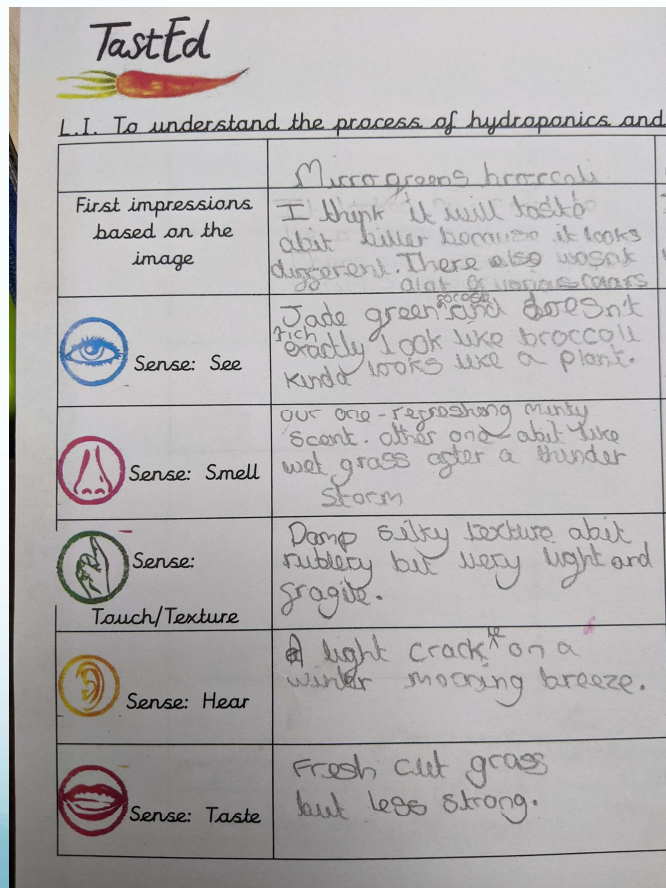 TastEd
L.I. To understand the process of hydroponics and
Microgreens broccoli
First impressions
based on the
image
I think it will taste
abit bitter because it looks
different. There also wasnt
alot of
Sense: See
Jade green and doesn't
rich
exactly look like broccoli
kinda looks like a plant.
Sense: Smell
our one - refreshing minty
scent. other one abit like
wet grass after a thunder
storm
Sense:
Touch/Texture
Damp silky texture abit
rubbery but very light and
fragile.
Sense: Hear
A light crack on a
winter morning breeze.
Sense: Taste
Fresh cut grass
but less strong.